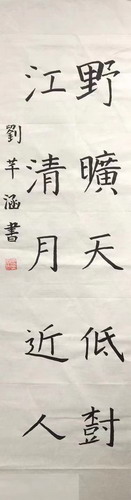 野曠天低樹
江清月近人
劉芊涵書